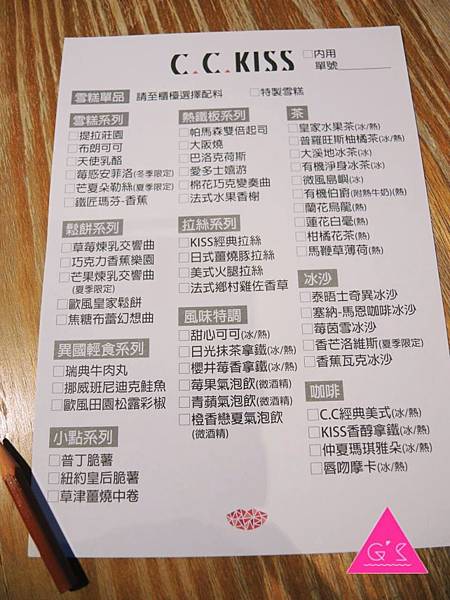 C.C.KISS
□內用
單號
雪糕單品 請至櫃檯選擇配料 □特製雪糕
雪糕系列
□提拉莊園
□布朗可可
□天使乳酪
□莓惑安菲洛(冬季限定)
□芒夏朵勒絲(夏季限定)
□鐵匠瑪芬-香蕉
鬆餅系列
□草莓煉乳交響曲
□巧克力香蕉樂園
□芒果煉乳交響曲
(夏季限定)
□歐風皇家鬆餅
□焦糖布蕾幻想曲
異國輕食系列
□瑞典牛肉丸
□挪威班尼迪克鮭魚
□歐風田園松露彩椒
小點系列
□普丁脆薯
□紐約皇后脆薯
□草津薑燒中卷
熱鐵板系列
□帕馬森雙倍起司
□大阪燒
□巴洛克荷斯
□愛多士嬉游
□棉花巧克變奏曲
□法式水果香榭
拉絲系列
□KISS經典拉絲
□日式薑燒豚拉絲
□美式火腿拉絲
□法式鄉村雞佐香草
風味特調
□甜心可可(冰/熱)
□日光抹茶拿鐵(冰/熱)
□櫻井莓香拿鐵(冰/熱)
□莓果氣泡飲(微酒精)
□青蘋氣泡飲(微酒精)
□橙香戀夏氣泡飲
(微酒精)
茶
□皇家水果茶(冰/熱)
□普羅旺斯柚橘茶(冰/熱)
□大溪地冰茶(冰)
□有機淨身冰茶(冰)
□微風島嶼(冰)
□有機伯爵(附熱牛奶)(熱)
□蘭花烏龍(熱)
□蓮花白毫(熱)
□柑橘花茶(熱)
□馬鞭草薄荷(熱)
冰沙
□泰晤士奇異冰沙
□塞納-馬恩咖啡冰沙
□莓茵雪冰沙
□香芒洛維斯(夏季限定)
□香蕉瓦克冰沙
咖啡
□C.C經典美式(冰/熱)
□KISS香醇拿鐵(冰/熱)
□仲夏瑪琪雅朵(冰/熱)
□唇吻摩卡(冰/熱)
G'S